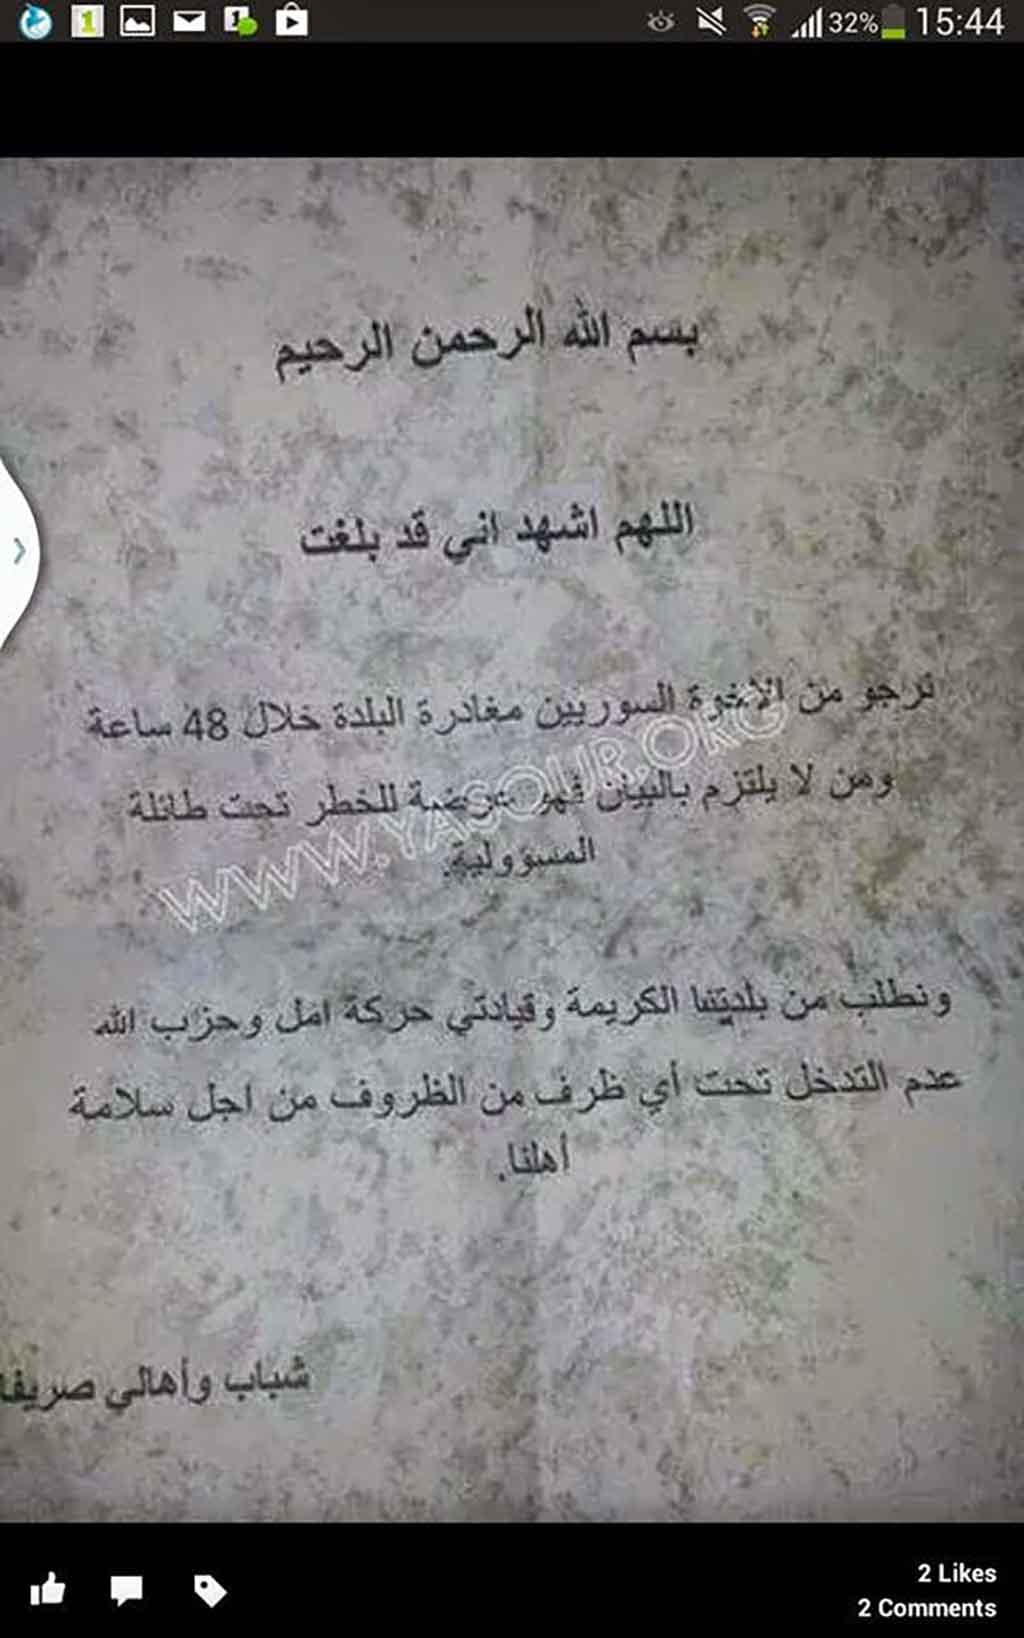 32% 15:44
بسم الله الرحمن الرحيم
اللهم اشهد اني قد بلغت
نرجو من الاخوة السوريين مغادرة البلدة خلال 48 ساعة
ومن لا يلتزم بالبيان فهو عرضة للخطر تحت طائلة
المسؤولية.
WWW.YASOUR.ORG
ونطلب من بلديتنا الكريمة وقيادتي حركة امل وحزب الله
عدم التدخل تحت أي ظرف من الظروف من اجل سلامة
أهلنا.
شباب وأهالي صريفا
2 Likes
2 Comments